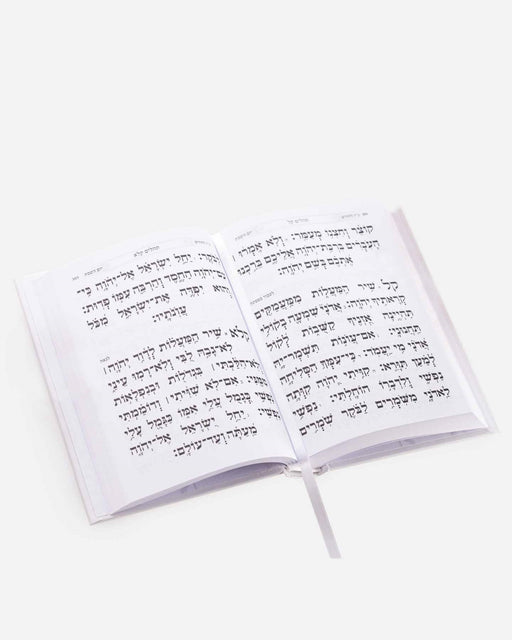 תהלים קל
קוֹצֵר וְחִצְנוֹ מְעַמֵּר: וְלֹא אָמְרוּ ׀
הָעֹבְרִים בִּרְכַּת־יְהוָה אֲלֵיכֶם בֵּרַכְנוּ
אֶתְכֶם בְּשֵׁם יְהוָה:
קל שִׁיר הַמַּעֲלוֹת מִמַּעֲמַקִּים
קְרָאתִיךָ יְהוָה: אֲדֹנָי שִׁמְעָה בְקוֹלִי
תִּהְיֶינָה אָזְנֶיךָ קַשֻּׁבוֹת לְקוֹל
תַּחֲנוּנָי: אִם־עֲוֹנוֹת תִּשְׁמָר־יָהּ
אֲדֹנָי מִי יַעֲמֹד: כִּי־עִמְּךָ הַסְּלִיחָה
לְמַעַן תִּוָּרֵא: קִוִּיתִי יְהוָה קִוְּתָה
נַפְשִׁי וְלִדְבָרוֹ הוֹחָלְתִּי: נַפְשִׁי
לַאדֹנָי מִשֹּׁמְרִים לַבֹּקֶר שֹׁמְרִים
תהלים קלא
לַבֹּקֶר: יַחֵל יִשְׂרָאֵל אֶל־יְהוָה כִּי־
עִם־יְהוָה הַחֶסֶד וְהַרְבֵּה עִמּוֹ פְדוּת:
וְהוּא יִפְדֶּה אֶת־יִשְׂרָאֵל מִכֹּל
עֲוֹנֹתָיו:
קלא שִׁיר הַמַּעֲלוֹת לְדָוִד יְהוָה ׀
לֹא־גָבַהּ לִבִּי וְלֹא־רָמוּ עֵינַי
וְלֹא־הִלַּכְתִּי ׀ בִּגְדֹלוֹת וּבְנִפְלָאוֹת
מִמֶּנִּי: אִם־לֹא שִׁוִּיתִי ׀ וְדוֹמַמְתִּי
נַפְשִׁי כְּגָמֻל עֲלֵי אִמּוֹ כַּגָּמֻל עָלַי
נַפְשִׁי: יַחֵל יִשְׂרָאֵל אֶל־יְהוָה
מֵעַתָּה וְעַד־עוֹלָם: